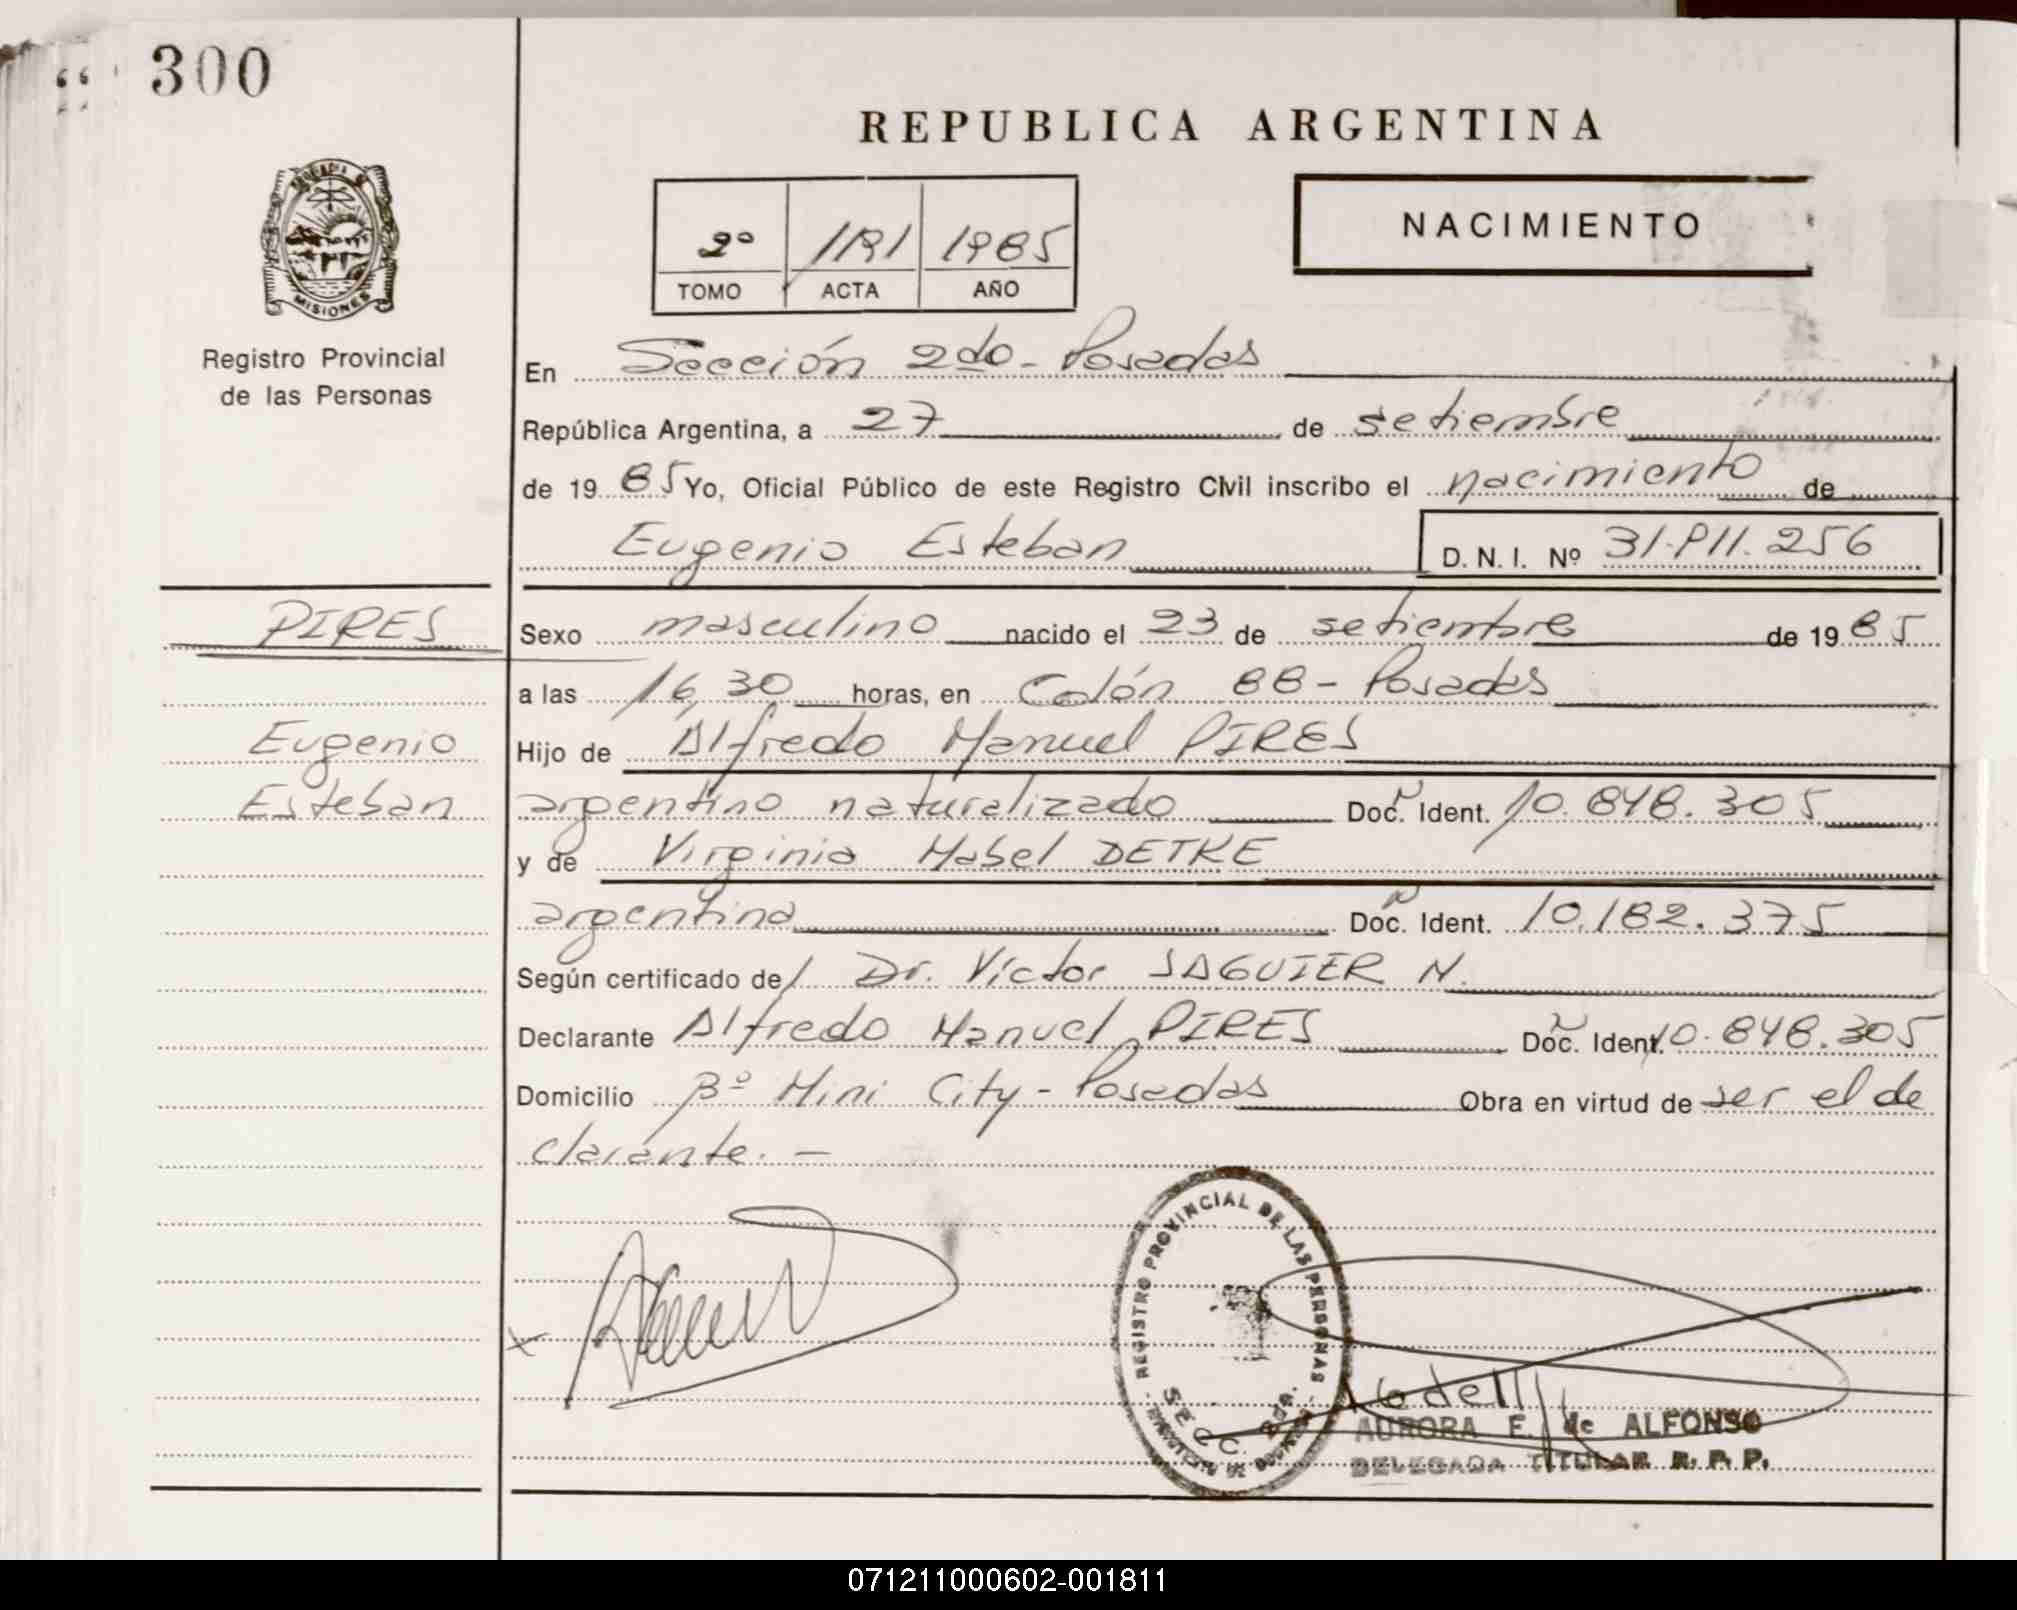 300
REPUBLICA ARGENTINA
PROVINCIA DE
MISIONES
Registro Provincial
de las Personas
2º 1191 1985
TOMO ACTA AÑO
NACIMIENTO
En Sección 2do - Posadas
República Argentina, a 27 de setiembre
de 19 85 Yo, Oficial Público de este Registro Civil inscribo el nacimiento de
Eugenio Esteban D. N. I. Nº 31.911.256
PIRES
Sexo masculino nacido el 23 de setiembre de 19 85
a las 16,30 horas, en Colón 88 - Posadas
Eugenio
Esteban
Hijo de Alfredo Manuel PIRES
argentino naturalizado Doc. Ident. 10.848.305
y de Virginia Mabel DETKE
argentina Doc. Ident. 10.182.375
Según certificado de/ Dr. Víctor SAGUIER N.
Declarante Alfredo Manuel PIRES Doc. Ident. 10.848.305
Domicilio Bº Mini City - Posadas Obra en virtud de ser el de
clarante. -
REGISTRO PROVINCIAL DE LAS PERSONAS
SECC. 2da.
AURORA E. de ALFONSO
DELEGADA TITULAR R. P. P.
071211000602-001811